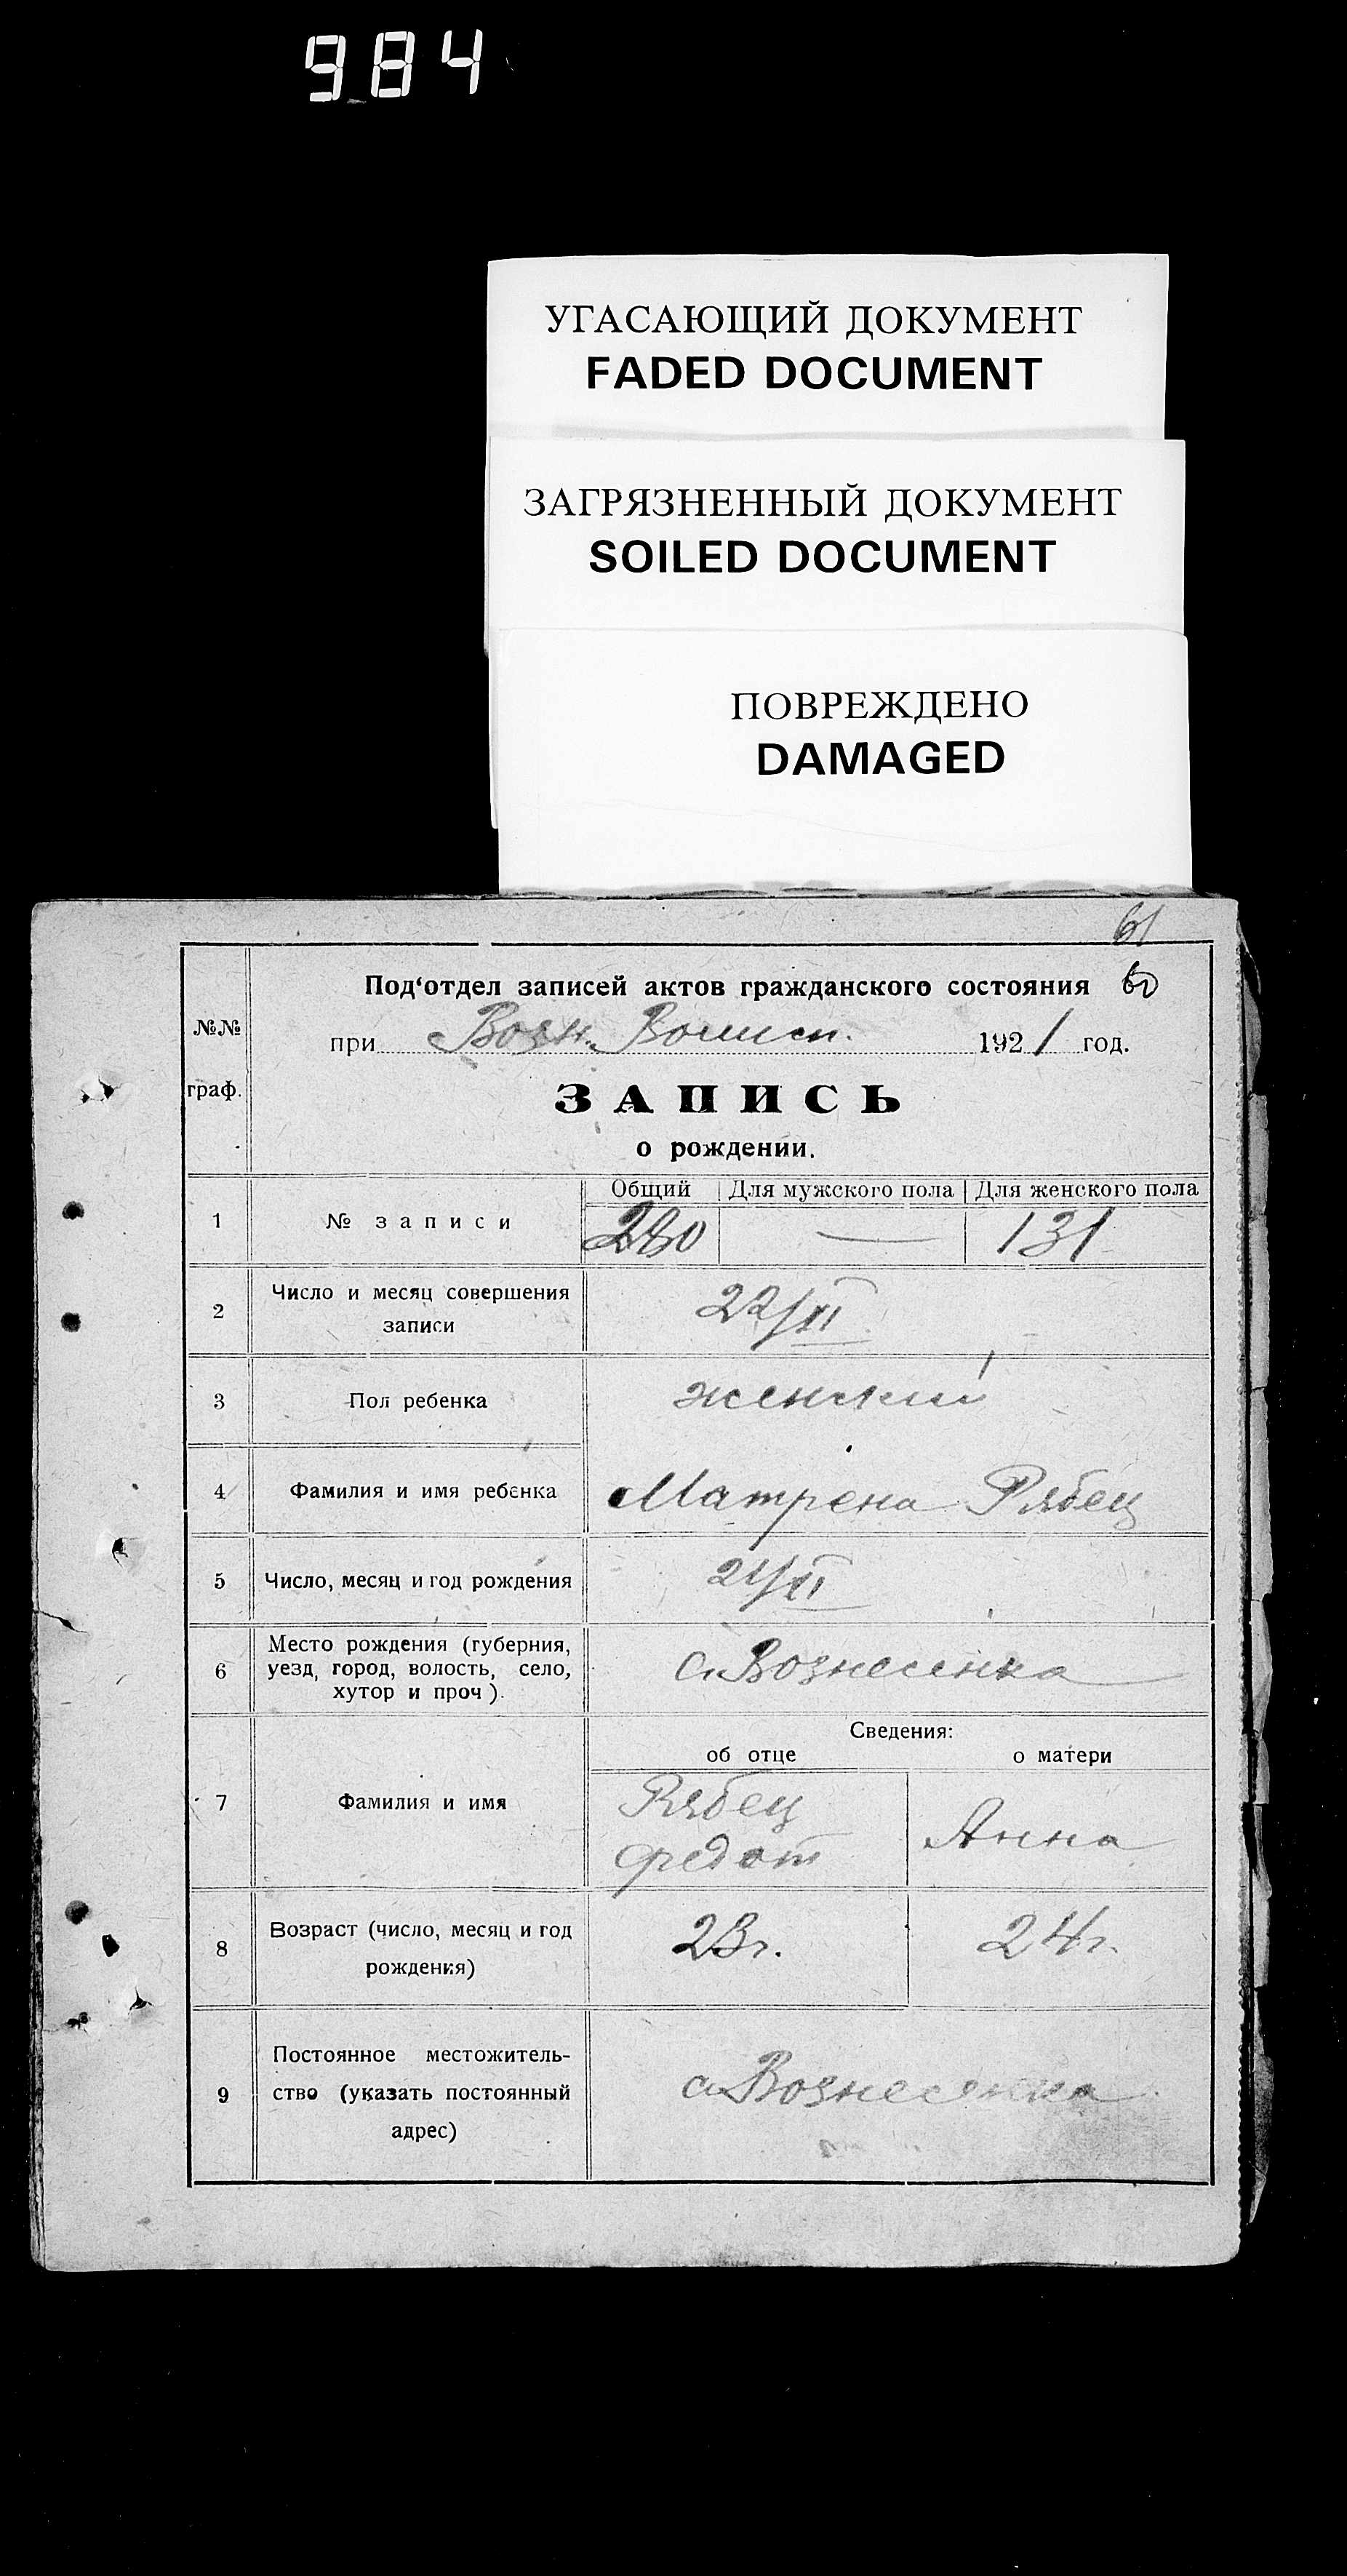 984
УГАСАЮЩИЙ ДОКУМЕНТ
FADED DOCUMENT
ЗАГРЯЗНЕННЫЙ ДОКУМЕНТ
SOILED DOCUMENT
ПОВРЕЖДЕНО
DAMAGED
61
Под‘отдел записей актов гражданского состояния 60
№№ при Возн. Волисп. 1921 год.
граф. ЗАПИСЬ
о рождении.
Общий Для мужского пола Для женского пола
1 № записи 280 — 131
2 Число и месяц совершения
записи 22/XI
3 Пол ребенка женский
4 Фамилия и имя ребенка Матрена Рябец
5 Число, месяц и год рождения 21/XI
6 Место рождения (губерния,
уезд, город, волость, село,
хутор и проч). с. Вознесенка
Сведения:
об отце о матери
7 Фамилия и имя Рябец
Федот Анна
8 Возраст (число, месяц и год
рождения) 23г. 24г.
9 Постоянное местожитель-
ство (указать постоянный
адрес) с. Вознесенка